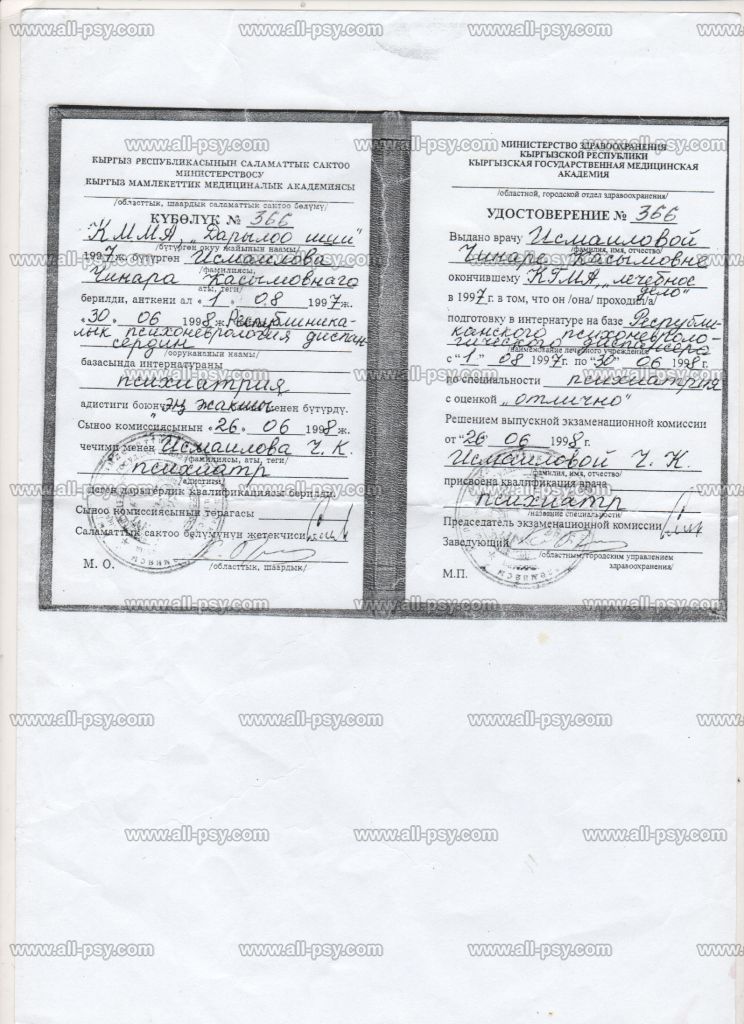 www.all-psy.com
КЫРГЫЗ РЕСПУБЛИКАСЫНЫН САЛАМАТТЫК САКТОО
МИНИСТЕРСТВОСУ
КЫРГЫЗ МАМЛЕКЕТТИК МЕДИЦИНАЛЫК АКАДЕМИЯСЫ
/областтык, шаардык саламаттык сактоо бөлүмү/
КҮБӨЛҮК № 366
КММА „Дарылоо иши"
/бүтүргөн окуу жайынын наамы/
1997ж. бүтүргөн Исмаилова
/фамилиясы,
Чинара Касымовнага
аты, теги/
берилди, анткени ал «1» 08 1997ж.
«30» 06 1998ж. Республика-
лык психоневрология диспан-
сердин
/оорукананын наамы/
базасында интернатураны
психиатрия
адистиги боюнча „эң жакшы" менен бүтүрдү.
Сыноо комиссиясынын «26» 06 1998ж.
чечими менен Исмаилова Ч. К.
/фамилиясы, аты, теги/
психиатр
/адистиги
деген дарыгердик квалификациясы берилди.
Сыноо комиссиясынын төрагасы
Саламаттык сактоо бөлүмүнүн жетекчиси
/областтык, шаардык/
М. О.
МИНИСТЕРСТВО ЗДРАВООХРАНЕНИЯ
КЫРГЫЗСКОЙ РЕСПУБЛИКИ
КЫРГЫЗСКАЯ ГОСУДАРСТВЕННАЯ МЕДИЦИНСКАЯ
АКАДЕМИЯ
/областной, городской отдел здравоохранения/
УДОСТОВЕРЕНИЕ № 366
Выдано врачу Исмаиловой
/фамилия, имя, отчество/
Чинаре Касымовне
окончившему КГМА, „лечебное
дело"
в 1997г. в том, что он /она/ проходил/а/
подготовку в интернатуре на базе Республи-
канского психоневроло-
гического диспансера
/наименование лечебного учреждения/
с "1." 08 1997г. по "30" 06 1998г.
по специальности психиатрия
с оценкой „отлично"
Решением выпускной экзаменационной комиссии
от "26" 06 1998г.
Исмаиловой Ч. К.
/фамилия, имя, отчество/
присвоена квалификация врача
психиатр
/название специальности/
Председатель экзаменационной комиссии
Заведующий
/областным, городским управлением
здравоохранения/
М.П.